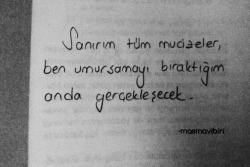 Sanırım tüm mucizeler,
ben umursamayı bıraktığım
anda gerçekleşecek.
-maemavibiri